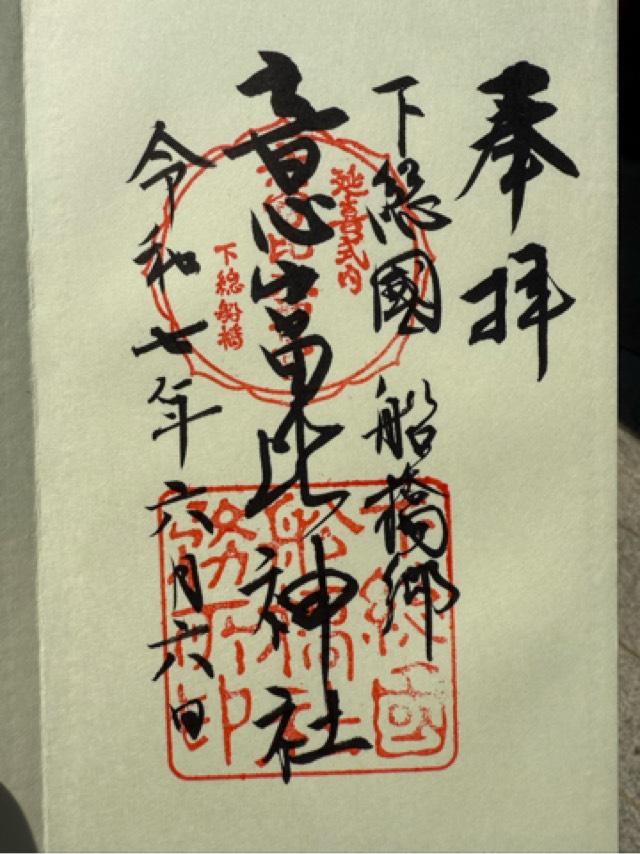 奉拝
下総國 船橋郷
意富比神社
令和七年六月六日
延喜式内
下総船橋
総国
船橋
務所印